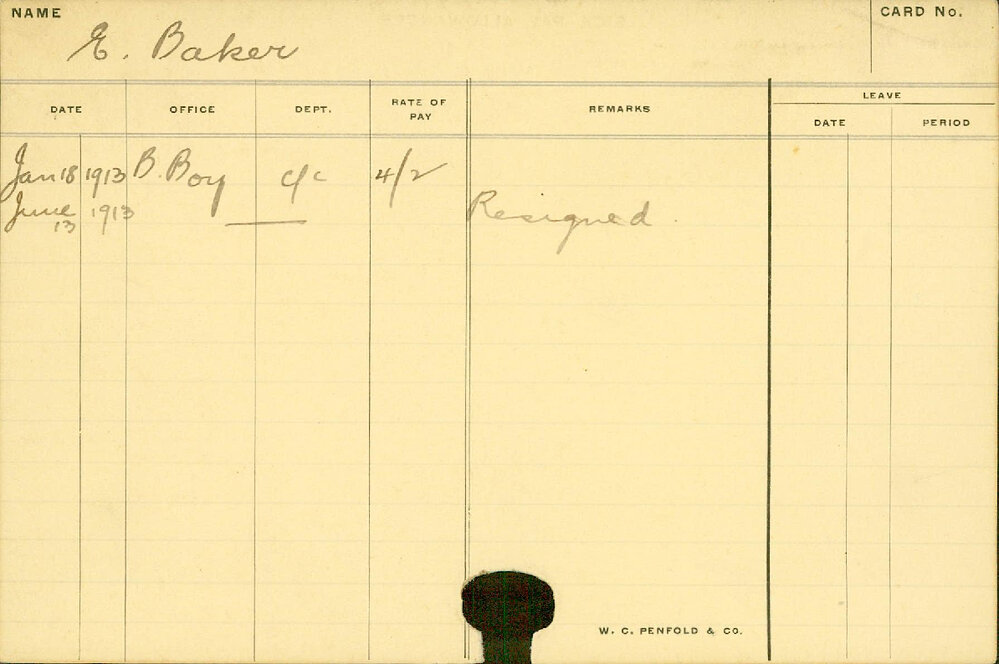 NAME
CARD No.
E. Baker
DATE OFFICE DEPT. RATE OF PAY REMARKS LEAVE
DATE PERIOD
Jan 18 1913 B. Boy c/c 4/2
June 13 1913 — Resigned.
W. C. PENFOLD & CO.